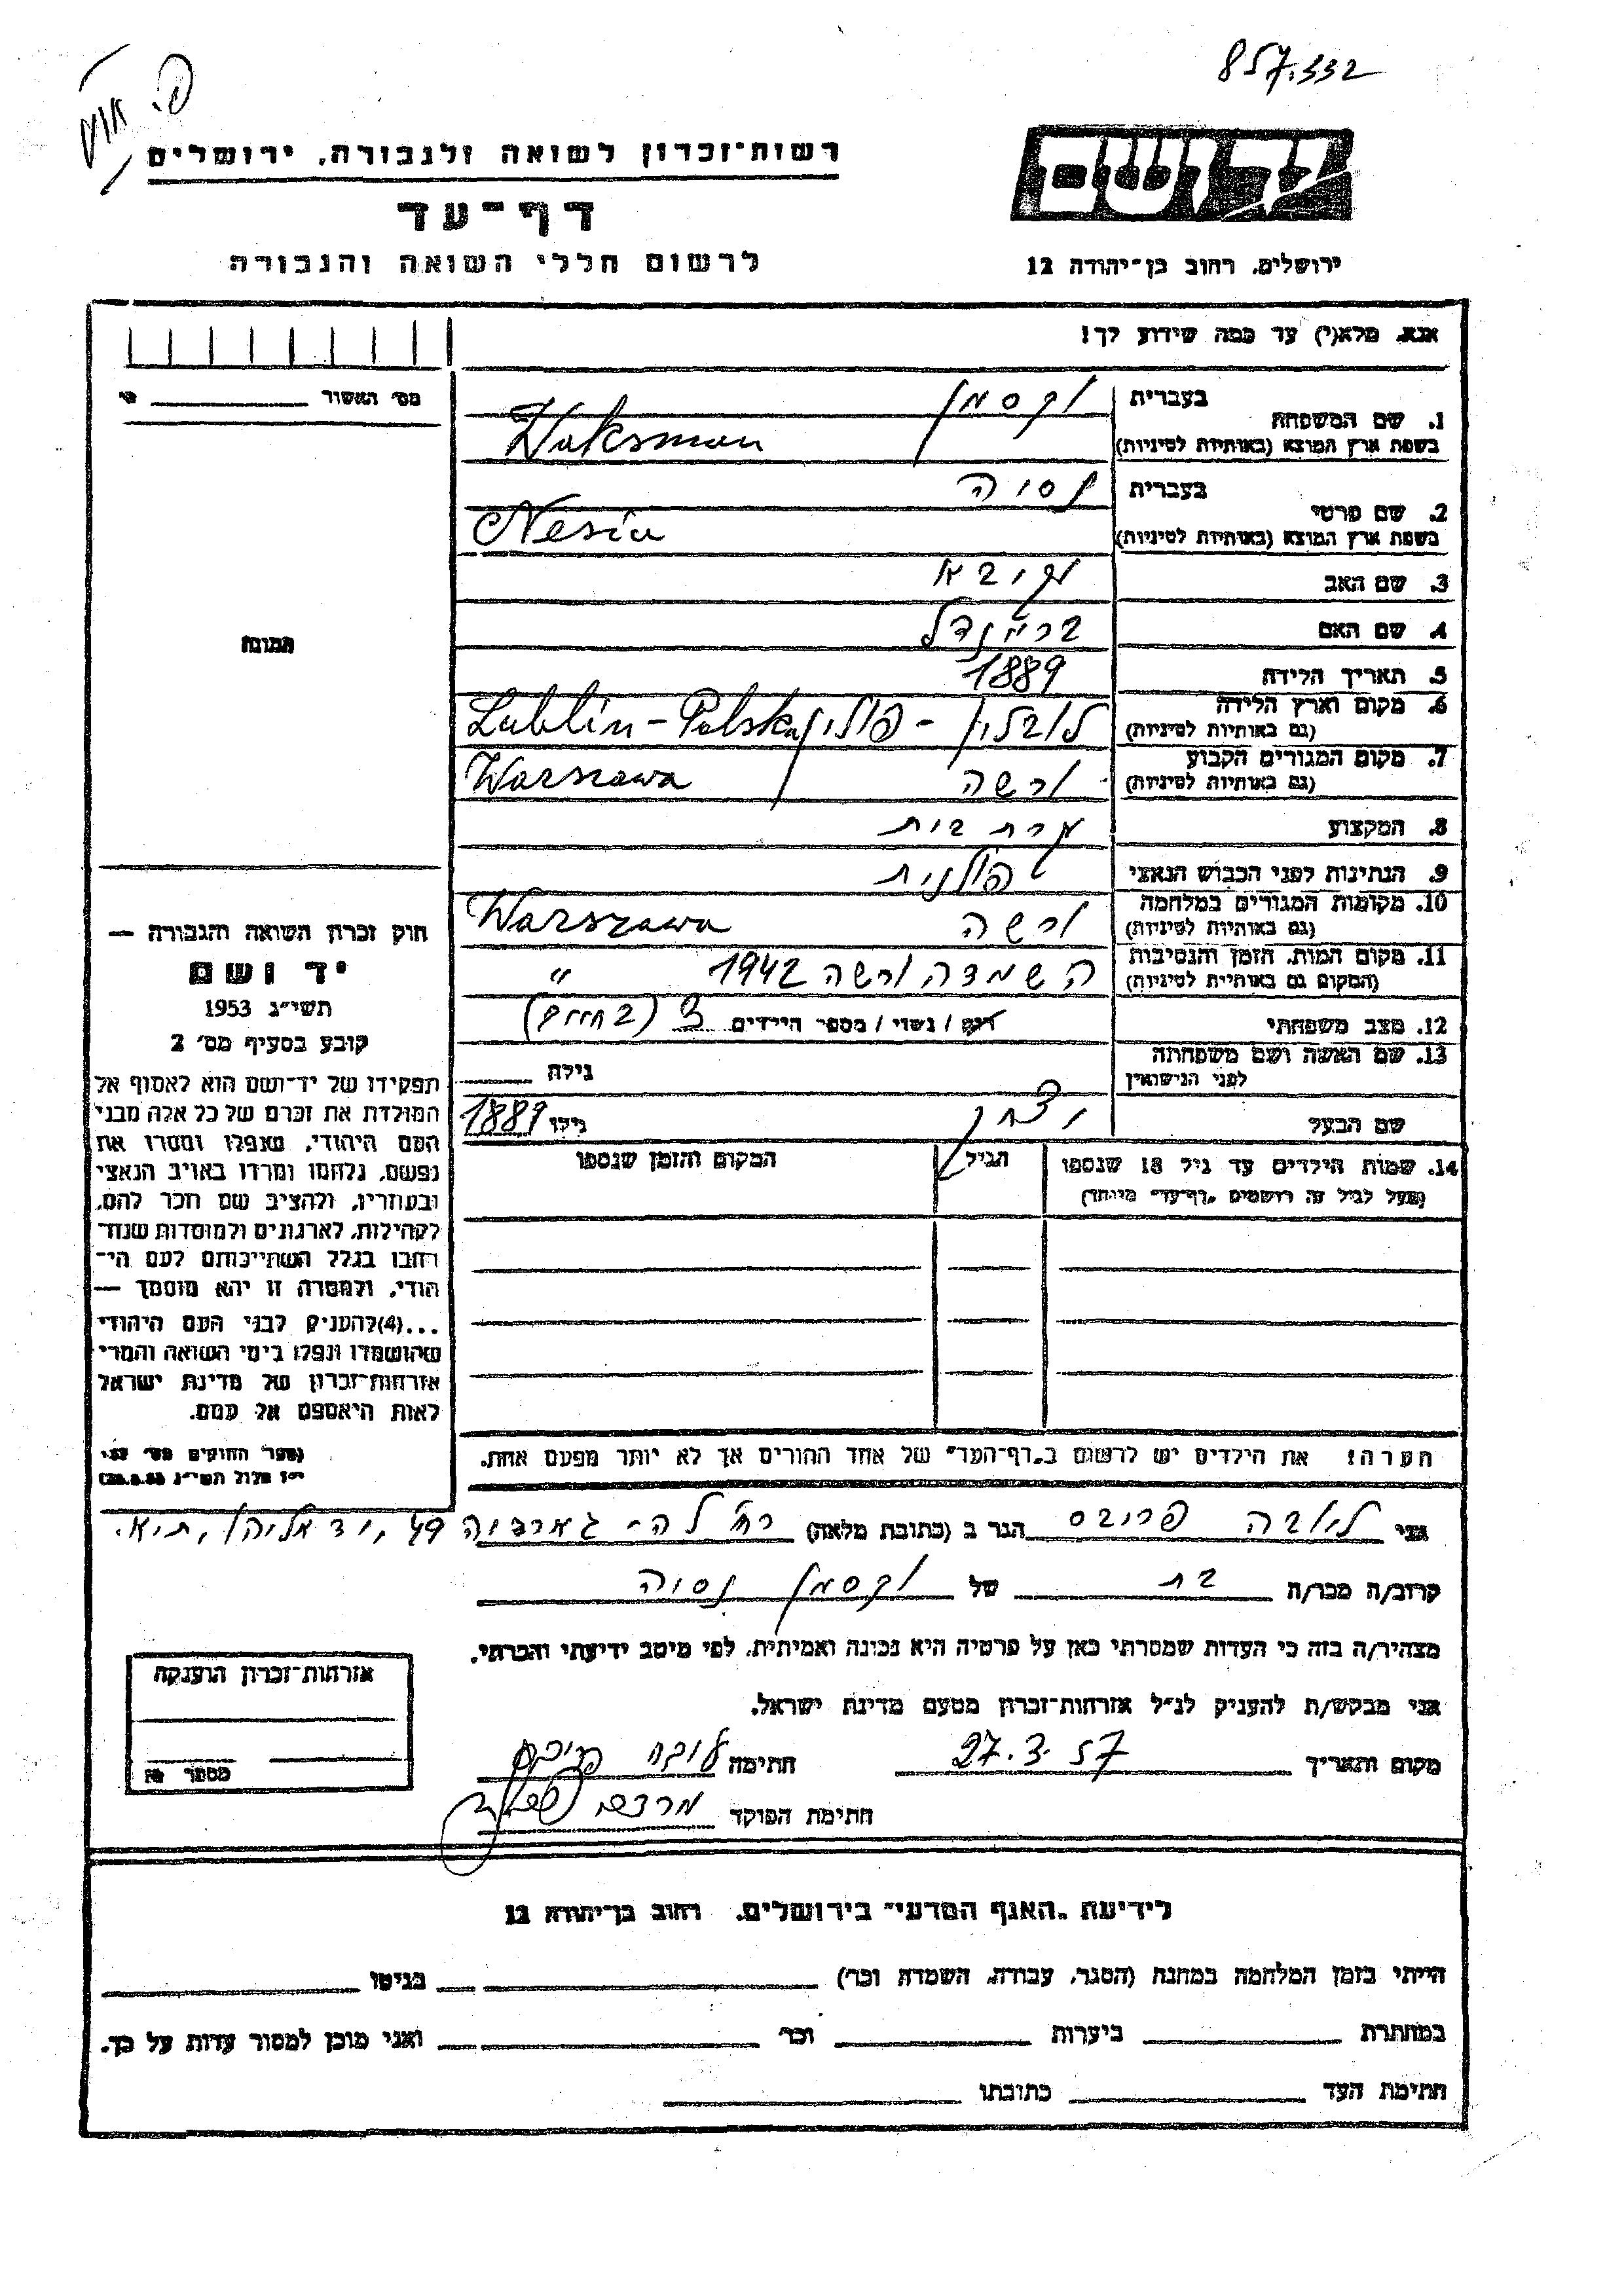 857.332
רשות־זכרון לשואה ולגבורה, ירושלים
יד ושם
דף־עד
לרשום חללי השואה והגבורה
ירושלים, רחוב בן־יהודה 12
אנא, מלא(י) עד כמה שידוע לך!
מס׳ האשור
בעברית וקסמן
1. שם המשפחה
בשפת ארץ המוצא (באותיות לטיניות) Waksman
בעברית נסיה
2. שם פרטי
בשפת ארץ המוצא (באותיות לטיניות) Nesia
3. שם האב
4. שם האם בריינדל
5. תאריך הלידה 1889
6. מקום וארץ הלידה לובלין - פולין Lublin - Polska
(גם באותיות לטיניות)
7. מקום המגורים הקבוע ורשה Warszawa
(גם באותיות לטיניות)
8. המקצוע עקרת בית
9. הנתינות לפני הכבוש הנאצי פולנית
10. מקומות המגורים במלחמה ורשה Warszawa
(גם באותיות לטיניות)
11. מקום המות, הזמן והנסיבות השמדה ורשה 1942 "
(המקום גם באותיות לטיניות)
12. מצב משפחתי רוק / נשוי / מספר הילדים 3 (בחיים)
13. שם האשה ושם משפחתה
לפני הנישואין גילה
שם הבעל יצחק גילו 1889
14. שמות הילדים עד גיל 18 שנספו הגיל המקום והזמן שנספו
(מעל לגיל זה רושמים „דף־עד״ מיוחד)
הערה! את הילדים יש לרשום ב„דף־העד״ של אחד ההורים אך לא יותר מפעם אחת.
תמונה
חוק זכרון השואה והגבורה —
יד ושם
תשי״ג 1953
קובע בסעיף מס׳ 2
תפקידו של יד־ושם הוא לאסוף אל
המולדת את זכרם של כל אלה מבני
העם היהודי, שנפלו ומסרו את
נפשם, נלחמו ומרדו באויב הנאצי
ובעוזריו, ולהציב שם וזכר להם,
לקהילות, לארגונים ולמוסדות שנח־
רבו בגלל השתייכותם לעם הי־
הודי, ולמטרה זו יהא מוסמך —
...(4)להעניק לבני העם היהודי
שהושמדו ונפלו בימי השואה והמרי
אזרחות־זכרון של מדינת ישראל
לאות היאספם אל עמם.
(ספר החוקים מס׳ 132,
י״ז אלול תשי״ג 28.8.53)
אני ליובה פרויבס הגר ב (כתובת מלאה) רח׳ לה־גארדיה 49, יד אליהו, ת״א.
קרוב/ה מכר/ה בת של וקסמן נסיה
מצהיר/ה בזה כי העדות שמסרתי כאן על פרטיה היא נכונה ואמיתית, לפי מיטב ידיעתי והכרתי.
אני מבקש/ת להעניק לנ״ל אזרחות־זכרון מטעם מדינת ישראל.
מקום ותאריך 27.3.57 חתימה
חתימת הפוקד מרדכי
אזרחות־זכרון הוענקה
מספר
לידיעת „האגף המדעי״ בירושלים, רחוב בן־יהודה 12
הייתי בזמן המלחמה במחנה (הסגר, עבודה, השמדה וכו׳) בגיטו
במחתרת ביערות וכו׳ ואני מוכן למסור עדות על כך.
חתימת העד כתובתו